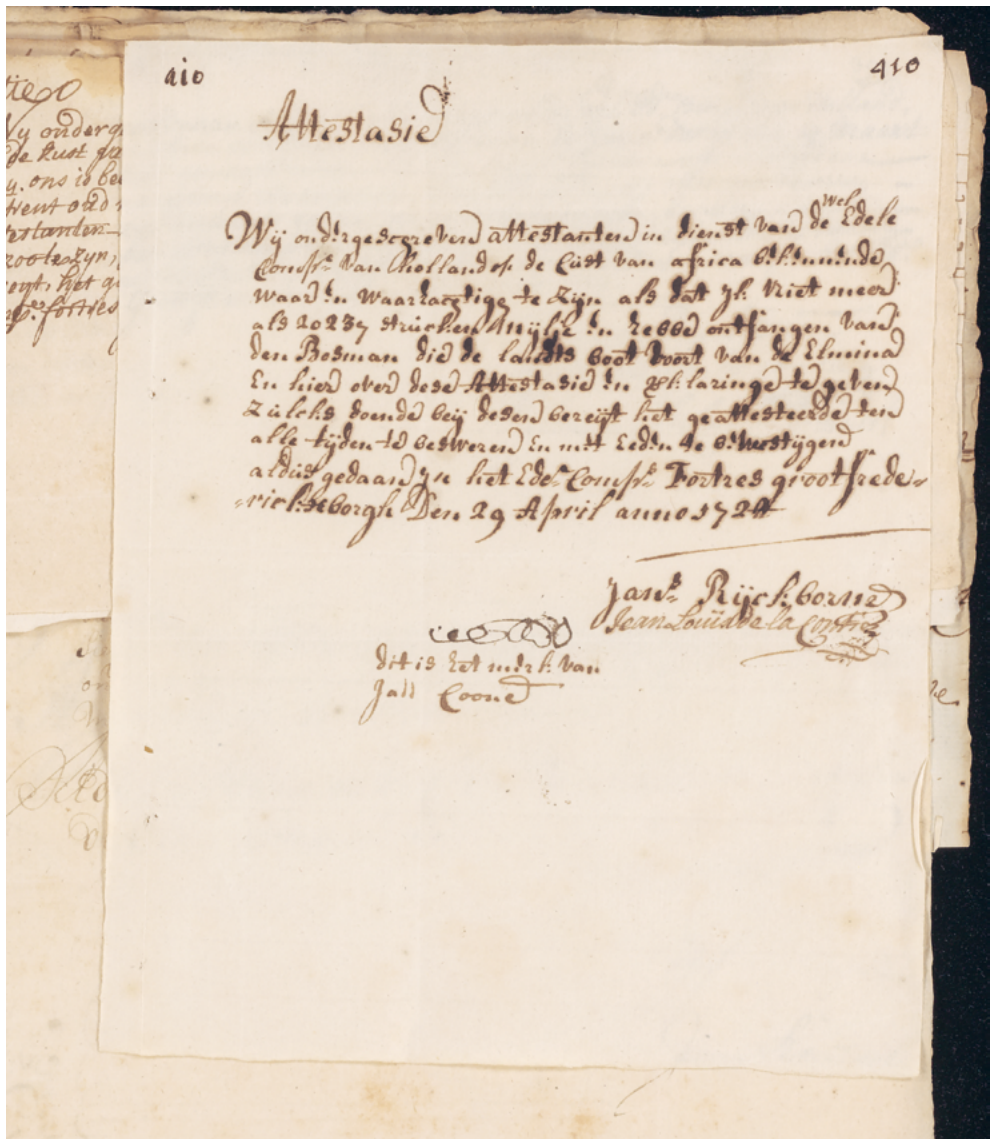 410 410
Attestasie
Wij ondergescreven attestanten in dienst van de Wel Edele
Comps. van Holland op de Cust van Africa bekennende
waar en waaractige te zijn als dat yk niet meer
als 20237 stucken hebbe ontfangen van
den Bosman die de landts boot voort van de Elmina
En hier over dese Attestasie en te geven
zulcks doende beij desen bereijt het geattesteerde ten
alle tijden te besweren En met Eeden te bevestijgen
aldus gedaan yn het Ede. Comps. Fortres groot frede-
-ricksborgh Den 29 April anno 1724
Jans. Rijckborne
Jean Louis de la
dit is het merk van
Jan Coone
tie
Wy onderg
de kust
ons is be
trent oud